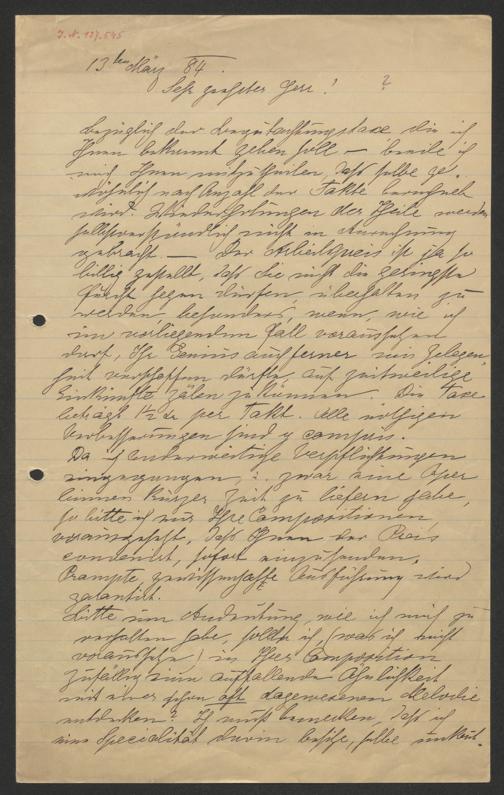 I.N. 127.545
13ten März 84.
Sehr geehrter Herr! ?
bezüglich der Begutachtungstaxe die ich
Ihnen bekannt geben soll – beeile ich
mich Ihnen mitzutheilen, daß selbe ge-
wöhnlich nach Anzahl der Takte berechnet
wird. Wiederholungen der Theile werden
selbstverständlich nicht in Anrechnung
gebracht. – Der Arbeitspreis ist ja so
billig gestellt, daß Sie nicht die geringste
Furcht hegen dürfen, überhalten zu
werden, besonders, wenn, wie ich
im vorliegenden Fall voraussehen
darf, Ihr Genius auch ferner mir Gelegen-
heit verschaffen dürfte, auf zeitweilige
Einkünfte zälen zu können. Die Taxe
beträgt ½ kr per Takt. Alle nöthigen
Verbesserungen sind y compris.
Da ich anderweitige Verpflichtungen
eingegangen, zwar eine Oper
binnen kurzer Zeit zu liefern habe,
so bitte ich mir Ihre Compositionen,
vorausgesetzt, daß Ihnen der Preis
convenirt, sofort einzusenden.
Prompte, gewissenhafte Ausführung wird
garantirt.
Bitte um Andeutung, wie ich mich zu
verhalten habe, sollte ich, (was ich nicht
voraussehe) in Ihrer Composition
zufällig eine auffallende Ähnlichkeit
mit einer schon oft dagewesenen Melodie
entdecken? Ich muß bemerken, daß ich
eine Specialität darin besitze, selbe